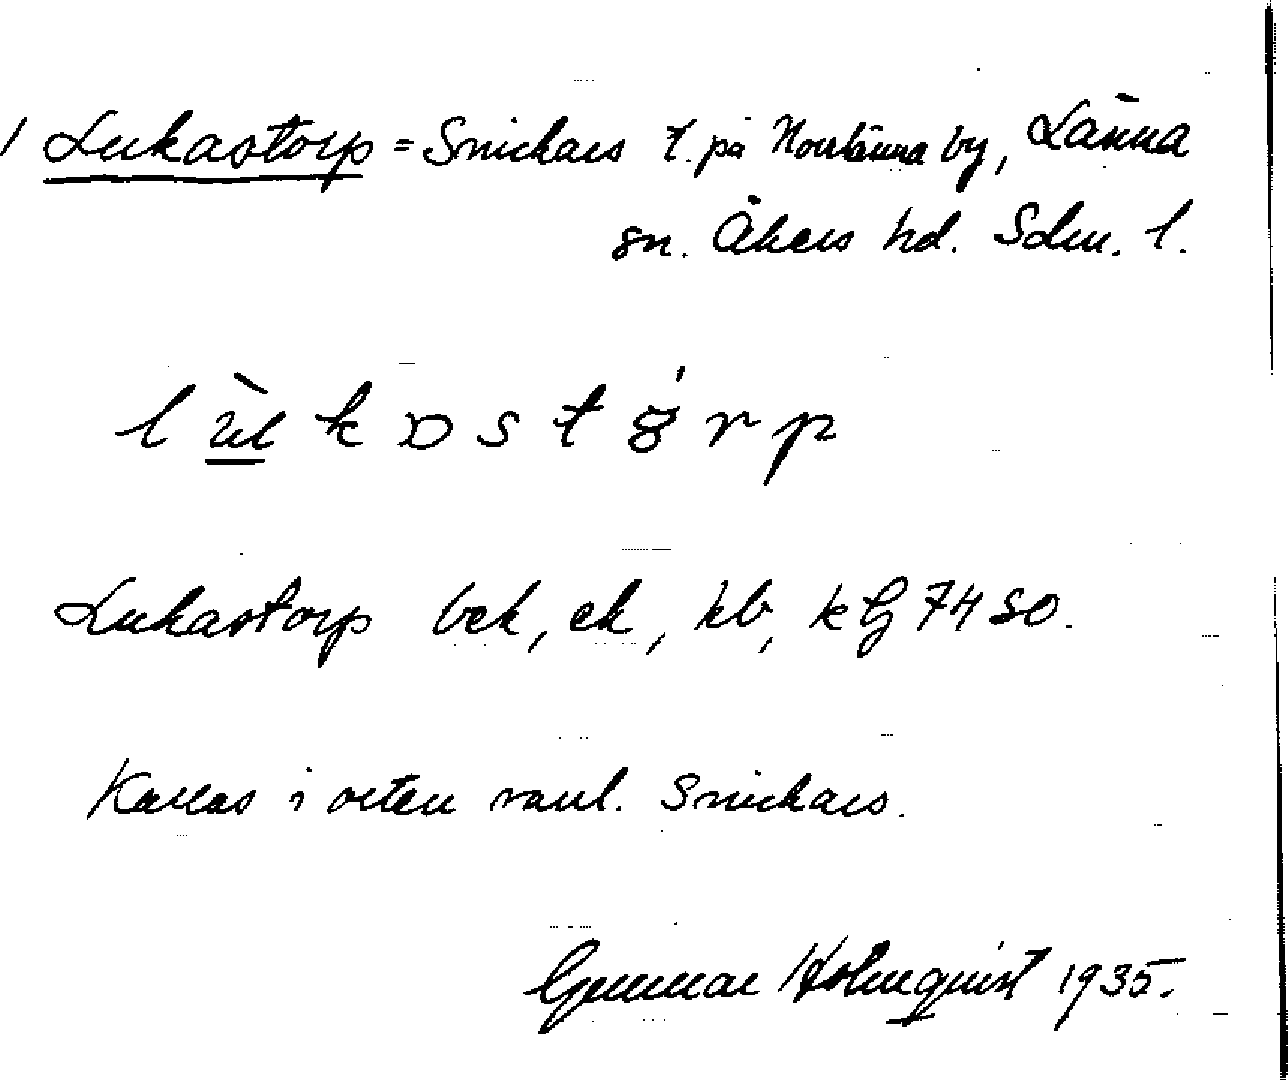 / Lukastorp = Snickars t. på Norrlänna by, Länna
sn. Åkers hd. Sdm. l.
Lukastorp bek, ek, hb, 7450.
Kallas i orten vanl. Snickars.
Gunnar Holmquist 1935.